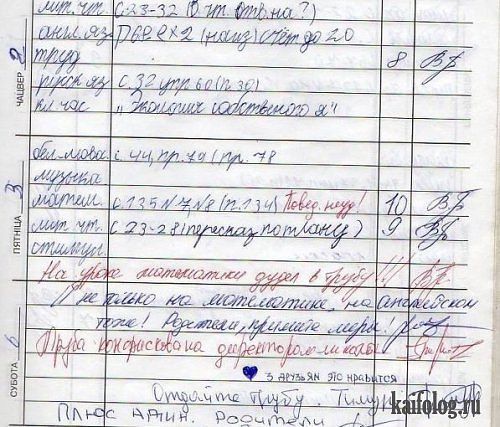 мт. чт. с.23-32 (О чт. отв. на?)
англ.яз. счёт до 20
труд 8
русск яз с.32 упр 60 (п.30)
кл час „Экология собственного я"
ЧАЦВЕР 2
бел. мова с.44, пр.79 (пр.78
музыка
матем. с.135 №7,№8 (п.134) Повед. неуд! 10
лит. чт. с 23-28 (пересказ по плану) 9
ПЯТНІЦА 3
На уроке математики дудел в трубу!!!
И не только на математике, на английском
тоже! Родители, примите меры!
Труба конфискована директором школы
СУБОТА
3 друзьям это нравится
Отдайте трубу. Тимур
Плюс адин. Родители
kaifolog.ru